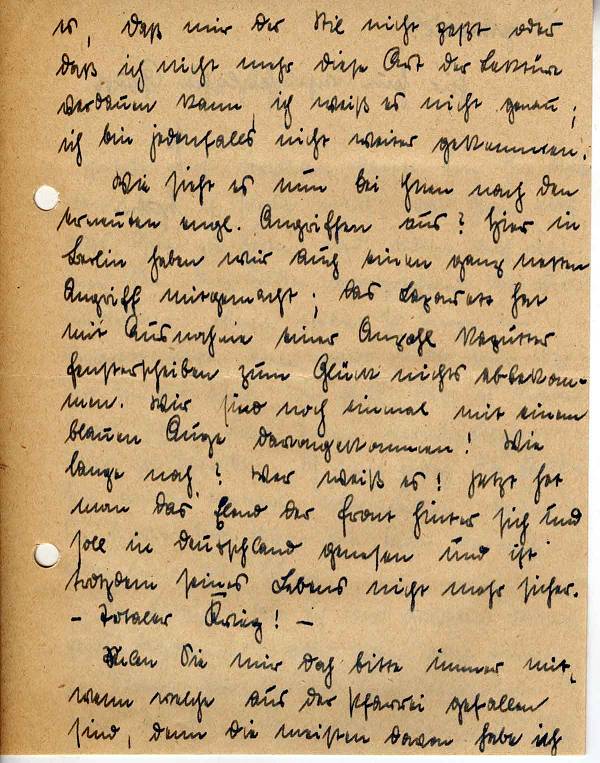 es, daß mir der Stil nicht paßt oder
daß ich nicht mehr diese Art der Lektüre
verdauen kann, ich weiß es nicht genau;
ich bin jedenfalls nicht weiter gekommen.
Wie sieht es nun bei Ihnen nach den
erneuten engl. Angriffen aus? Hier in
Berlin haben wir auch einen ganz netten
Angriff mitgemacht; das Lazarett hat
mit Ausnahme einer Anzahl kaputter
Fensterscheiben zum Glück nichts abbekom-
men. Wir sind noch einmal mit einem
blauen Auge davongekommen! Wie
lange noch? Wer weiß es! Jetzt hat
man das Elend der Front hinter sich und
soll in Deutschland genesen und ist
trotzdem seines Lebens nicht mehr sicher.
- Totaler Krieg! -
Sie mir doch bitte immer mit,
wenn welche aus der Pfarrei gefallen
sind, denn die meisten davon habe ich